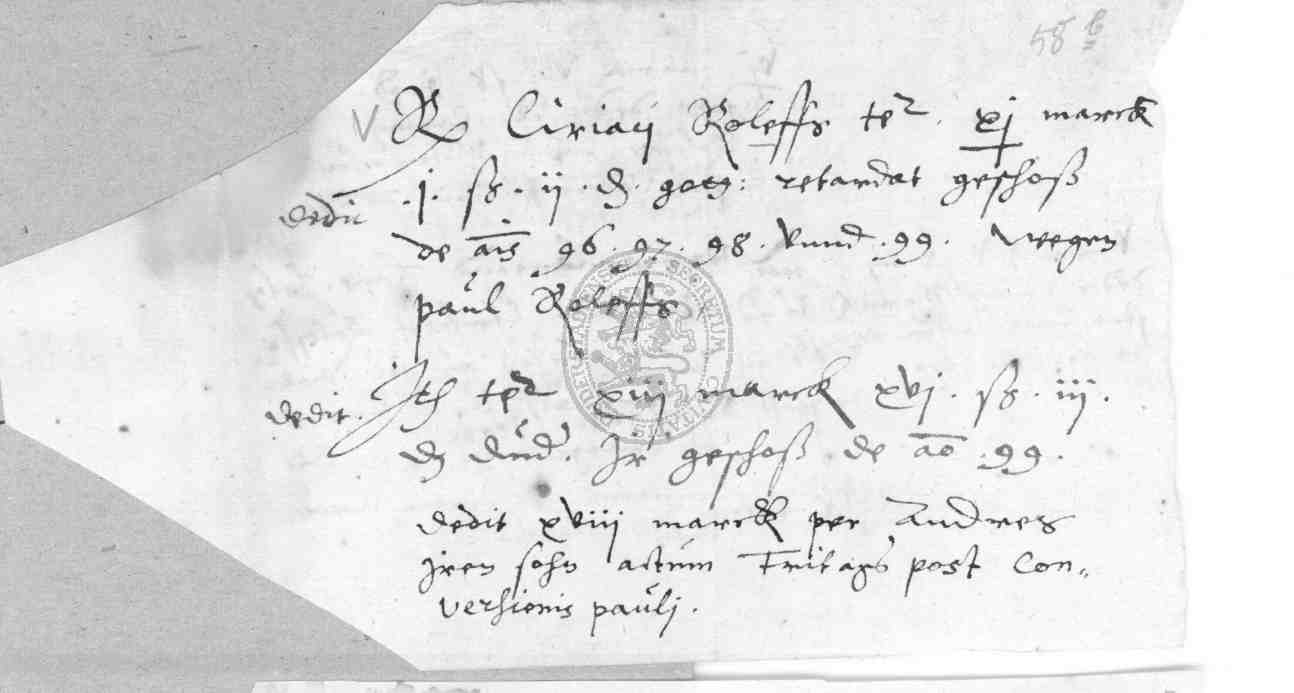 58 b
V R Ciriacj Roleffs ter. xj marck
dedit .j. ß. ij. ₰. gotz: retardat geschoß
de aīs 96. 97. 98. vnnd .99. wegen
paul Roleffs
dedit. Ith ter xiij marck xvj. ß. iij.
₰ Ir geschoß de ao .99.
dedit xviij marck per Andres
jren sohn actum Fritags post Con„
versionis paulj.
SECRETUM CIVITATIS